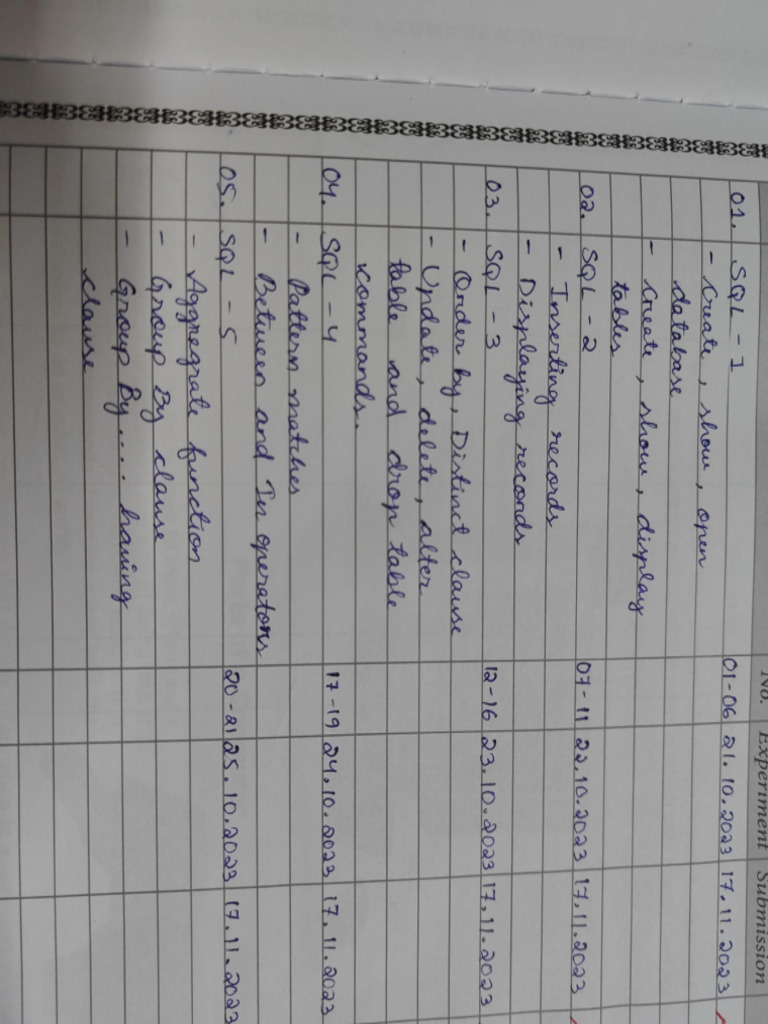 No. Experiment Submission
01. SQL - 1 01-06 21.10.2023 17.11.2023
- Create, show, open
database
- Create, show, display
tables
02. SQL - 2 07-11 22.10.2023 17.11.2023
- Inserting records
- Displaying records
03. SQL - 3 12-16 23.10.2023 17.11.2023
- Order by, Distinct clause
- Update, delete, alter
table and drop table
commands.
04. SQL - 4 17-19 24.10.2023 17.11.2023
- Pattern matches
- Between and In operators
05. SQL - 5 20-21 25.10.2023 17.11.2023
- Aggregrate function
- Group By clause
- Group By .... having
clause